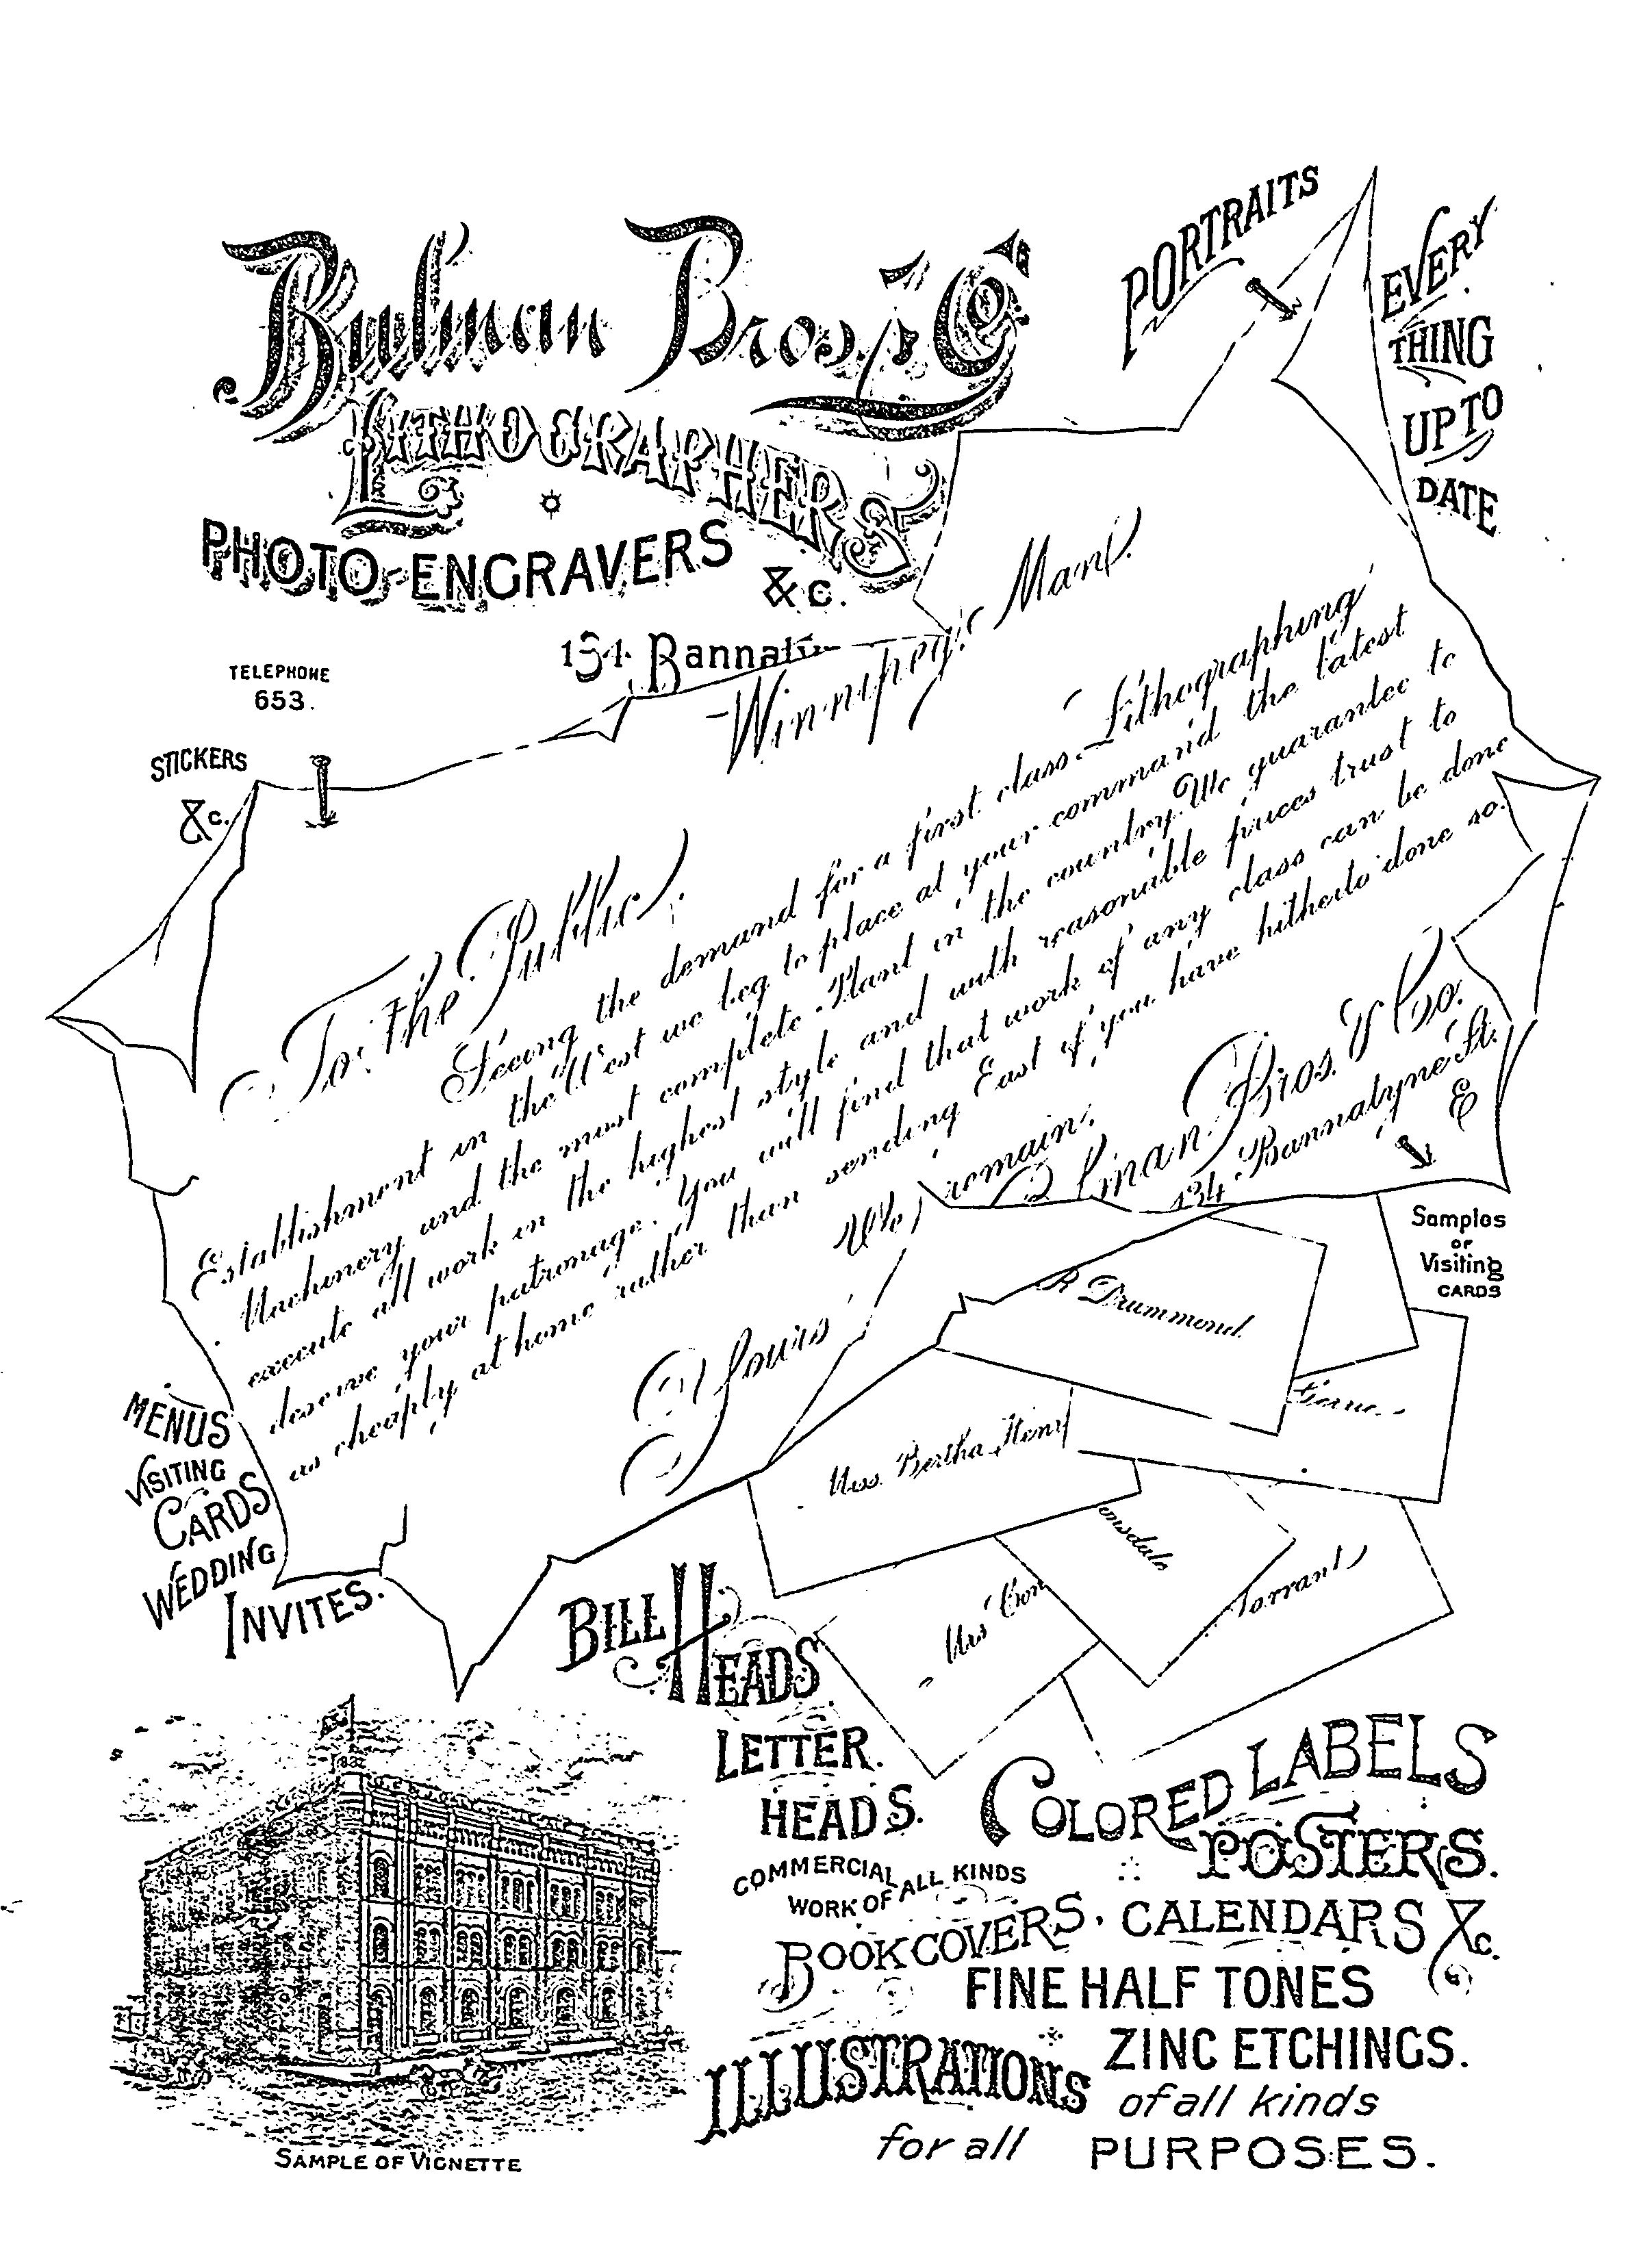 Bulman Bros. & Co.
LITHOGRAPHERS
PHOTO-ENGRAVERS
&c.
134 Bannaty
TELEPHONE
653.
PORTRAITS
EVERY
THING
UP TO
DATE
STICKERS
&c.
Winnipeg, Man.
To the Public.
Seeing the demand for a first class Lithographing
Establishment in the West we beg to place at your command the latest
Machinery and the most complete Plant in the country. We guarantee to
execute all work in the highest style and with reasonable prices trust to
deserve your patronage. You will find that work of any class can be done
as cheaply at home rather than sending East if you have hitherto done so.
We remain,
Yours
Bulman Bros. & Co.
134 Bannatyne St.
E
Samples
OF
Visiting
CARDS
R Drummond.
Miss Bertha Henry
onsdale
Mrs Con
Torrant
MENUS
VISITING
CARDS
WEDDING
INVITES.
BILL HEADS
LETTER
HEADS.
COMMERCIAL
WORK OF ALL KINDS
COLORED LABELS
POSTERS.
BOOKCOVERS, CALENDARS &c.
FINE HALF TONES
ZINC ETCHINGS.
of all kinds
ILLUSTRATIONS
for all PURPOSES.
SAMPLE OF VIGNETTE